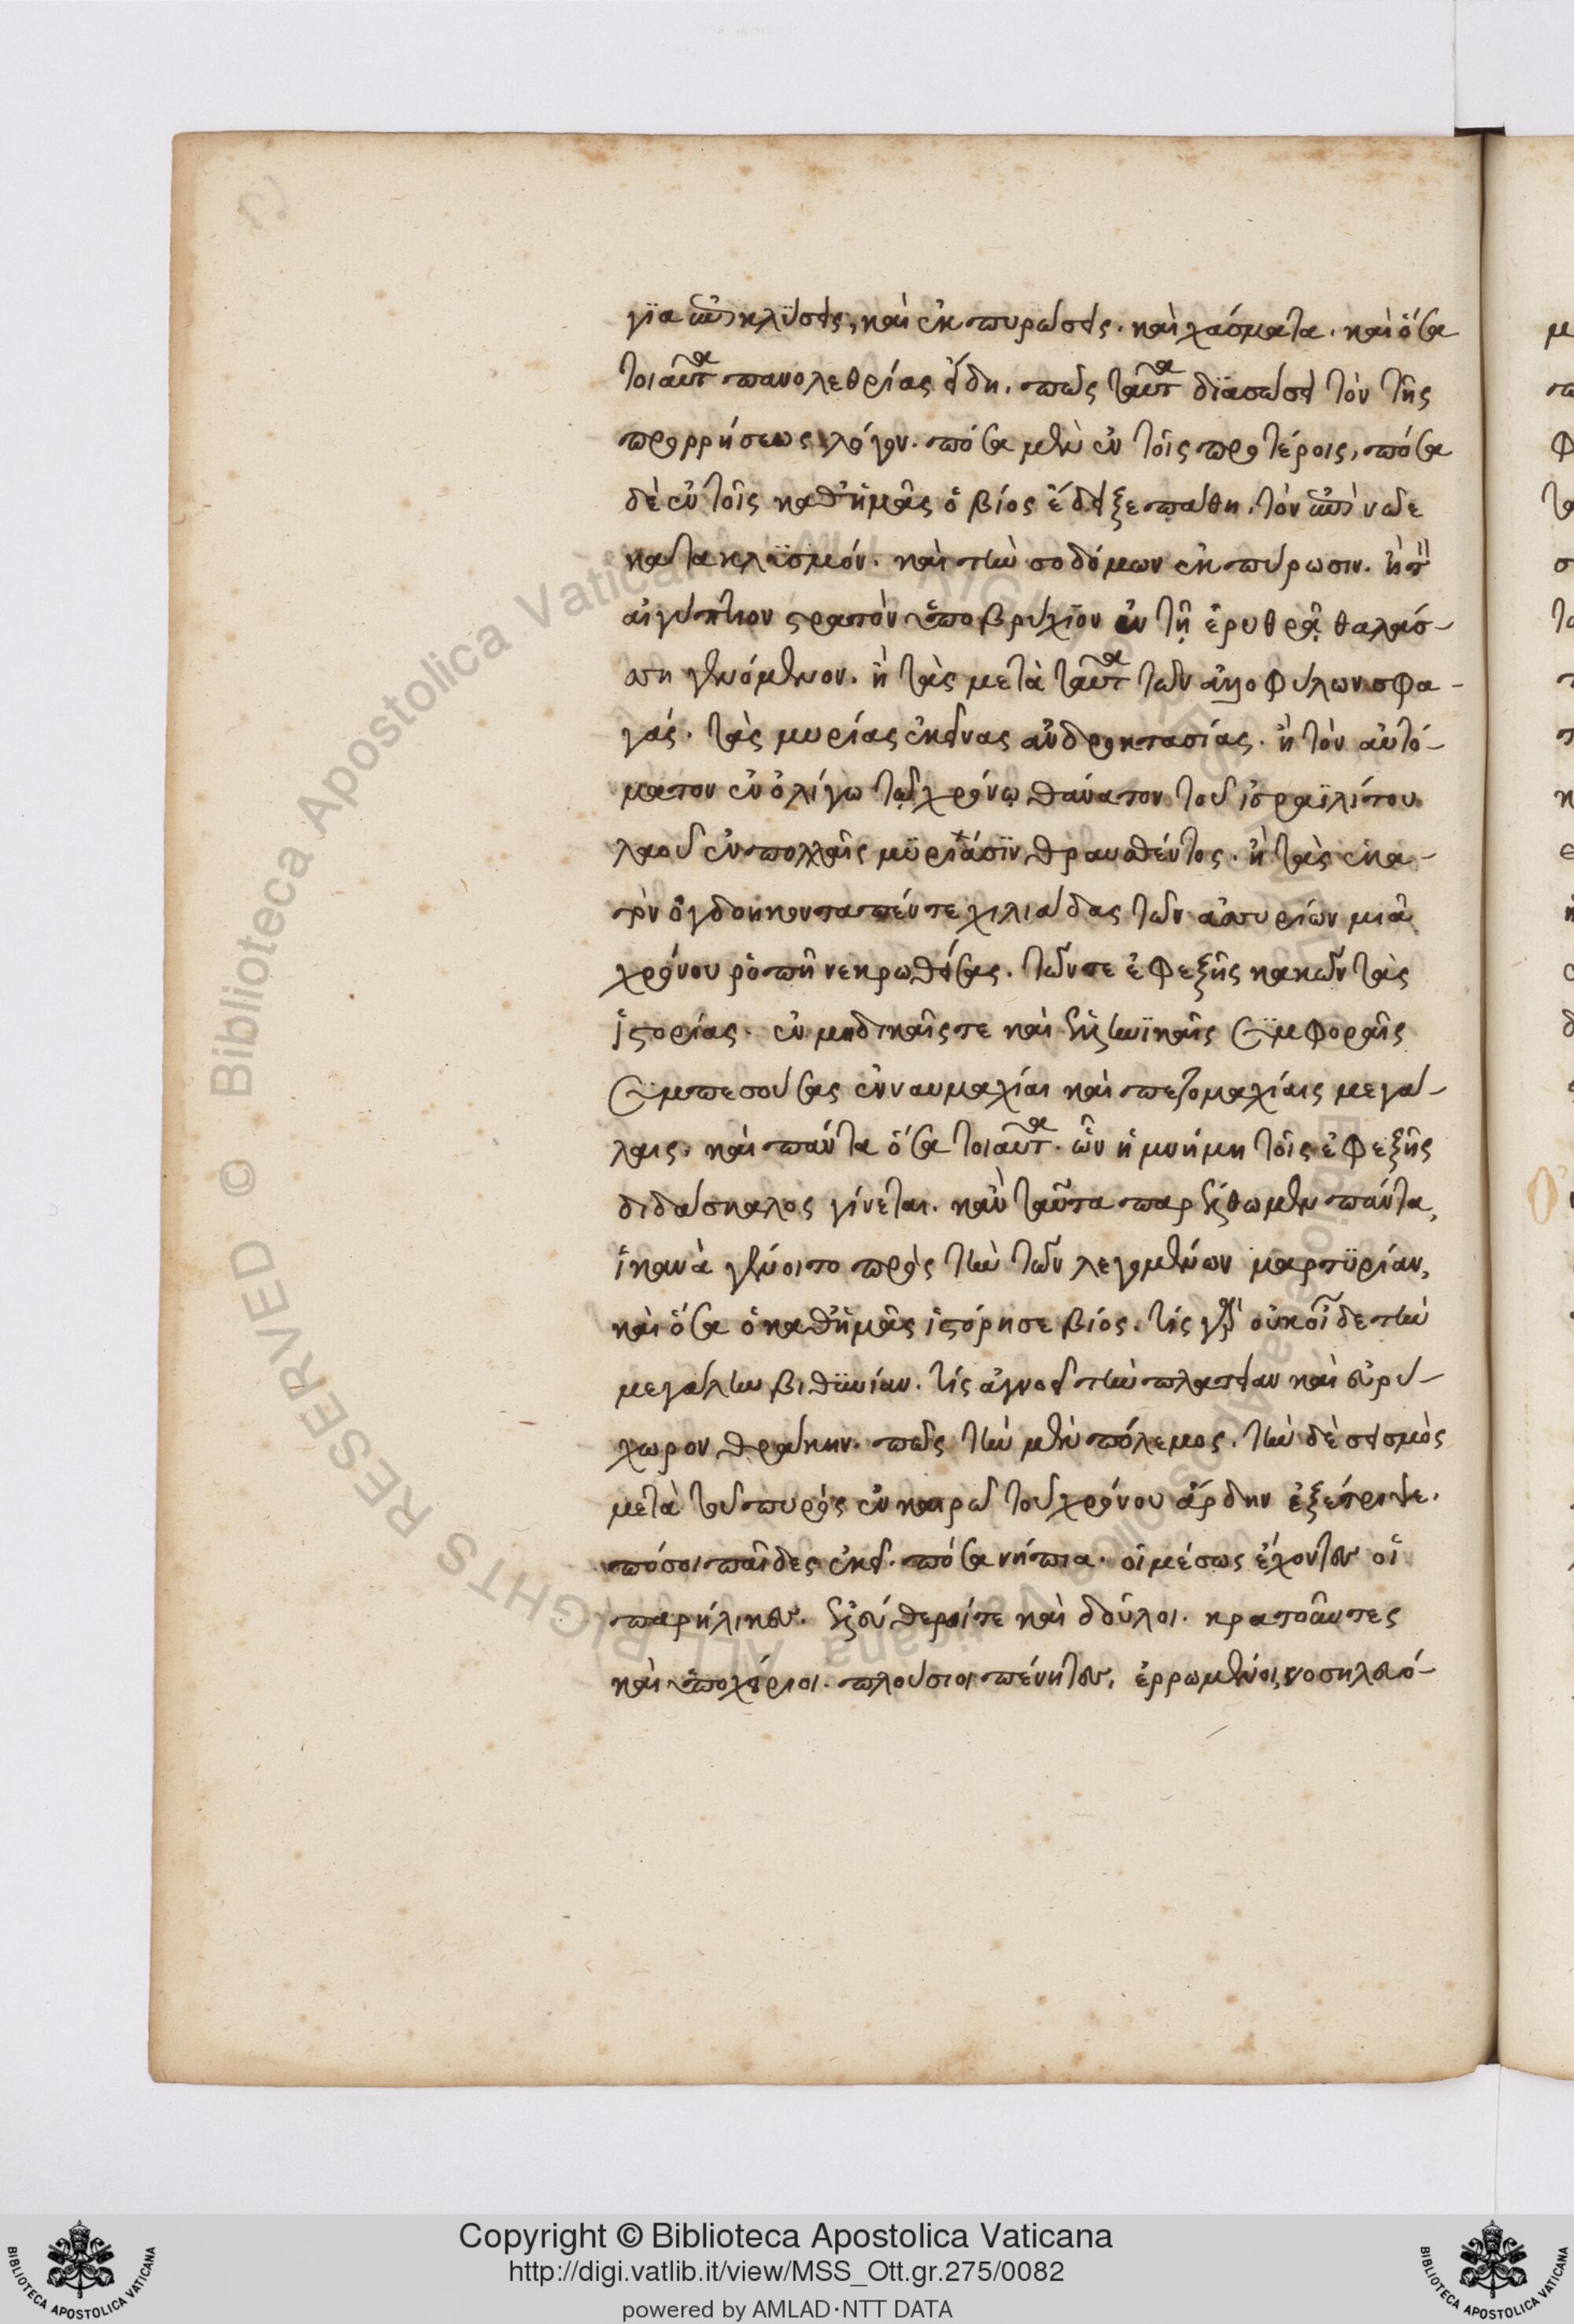 γϊα ἐπικλύσεις, καὶ ἐκπυρώσεις. καὶ χάσματα. καὶ ὅσα
τοιαῦτα πανολεθρίας εἴδη. πῶς ταῦτα διασώσει τὸν τῆς
προρρήσεως λόγον. πόσα μὲν ἐν τοῖς προτέροις, πόσα
δὲ ἐν τοῖς καθ' ἡμᾶς ὁ βίος ἔδειξε πάθη. τὸν ἐπὶ νῶε
κατακλϋσμόν. καὶ τὴν σοδόμων ἐκπύρωσιν. ἢ τὸν
αἰγύπτιον στρατὸν ὑποβρύχϊον ἐν τῇ ἐρυθρᾷ θαλάσ-
ση γενόμενον. ἢ τὰς μετὰ ταῦτα τῶν ἀλλοφύλων σφα-
γάς. τὰς μυρίας ἐκείνας ἀνδροκτασίας. ἢ τὸν αὐτό-
ματον ἐν ὀλίγω τῷ χρόνῳ θάνατον τοῦ ἰσραϊλίτου
λαοῦ ἐν πολλαῖς μϋριάσϊν θραυσθέντος. ἢ τὰς ἑκα-
τὸν ὀγδοηκονταπέντε χιλιάδας τῶν ἀσσυρίων μιᾷ
χρόνου ῥοπῇ νεκρωθείσας. τῶν τε ἐφεξῆς κακῶν τὰς
ἱστορίας. ἐν μηδικαῖς τε καὶ ἑλληνϊκαῖς σϋμφοραῖς
σϋμπεσούσας ἐν ναυμαχίαι καὶ πεζομαχίαις μεγά-
λαις. καὶ πάντα ὅσα τοιαῦτα. ὧν ἡ μνήμη τοῖς ἐφεξῆς
διδάσκαλος γίνεται. κἂν ταῦτα παρέλθωμεν πάντα,
ἱκανὰ γένοιτο πρὸς τὴν τῶν λεγομένων μαρτϋρίαν,
καὶ ὅσα ὁ καθ' ἡμᾶς ἱστόρησε βίος. τίς γὰρ οὐκ οἶδε τὴν
μεγάλην βιθϋνίαν. τίς ἀγνοεῖ τὴν πλατεῖαν καὶ εὐρύ-
χωρον θρᾴκην. πῶς τὴν μὲν πόλεμος. τὴν δὲ σεισμὸς
μετὰ τοῦ πυρὸς ἐν καιρῶ τοῦ χρόνου ἄρδην ἐξέτριψε.
πόσοι παῖδες ἐκεῖ. πόσα νήπια. οἱ μέσως ἔχοντες οἱ
παρήλικες. ἐλεύθεροί τε καὶ δοῦλοι. κρατοῦντες
καὶ ὑποχείριοι. πλούσιοι πένητες, ἐρρωμένοι, νοσηλευό-